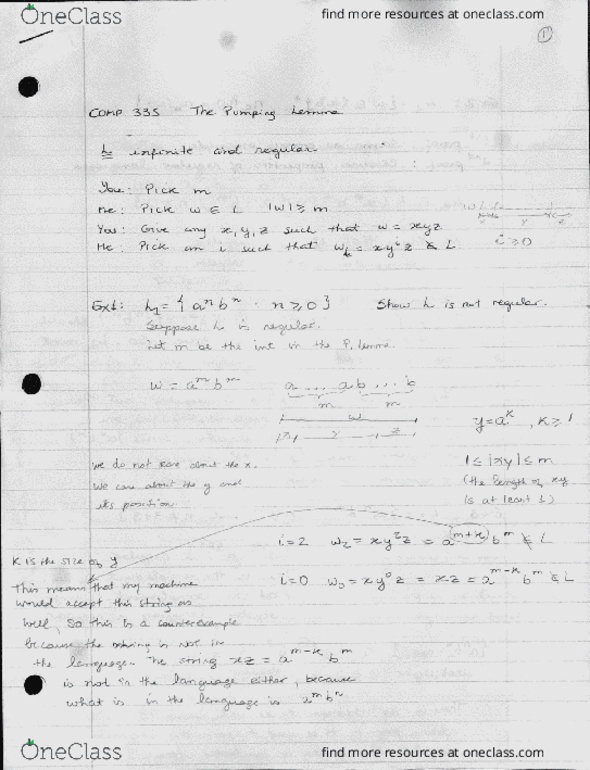 OneClass find more resources at oneclass.com
1
COMP 335 The Pumping Lemma
L infinite and regular.
You: Pick m
Me: Pick w ∈ L |w| ≥ m
You: Give any x, y, z such that w = xyz
Me: Pick an i such that wᵢ = xyⁱz ∉ L i ≥ 0
Ex1: L₁ = { aⁿbⁿ : n ≥ 0 } Show L is not regular.
Suppose L is regular.
Let m be the int in the P. Lemma.
w = aᵐbᵐ a ... ab ... b
m m
w
x y z
y = aᵏ, k ≥ 1
we do not care about the x.
we care about the y and
its position
1 ≤ |xy| ≤ m
(the length of xy
is at least 1)
i=2 w₂ = xy²z = a^(m+k) bᵐ ∉ L
i=0 w₀ = xy⁰z = xz = a^m-k bᵐ ∉ L
K is the size of y
This means that my machine
would accept this string as
well, so this is a counterexample
because the string is not in
the language. The string xz = a^m-k bᵐ
is not in the language either, because
what is in the language is
OneClass find more resources at oneclass.com